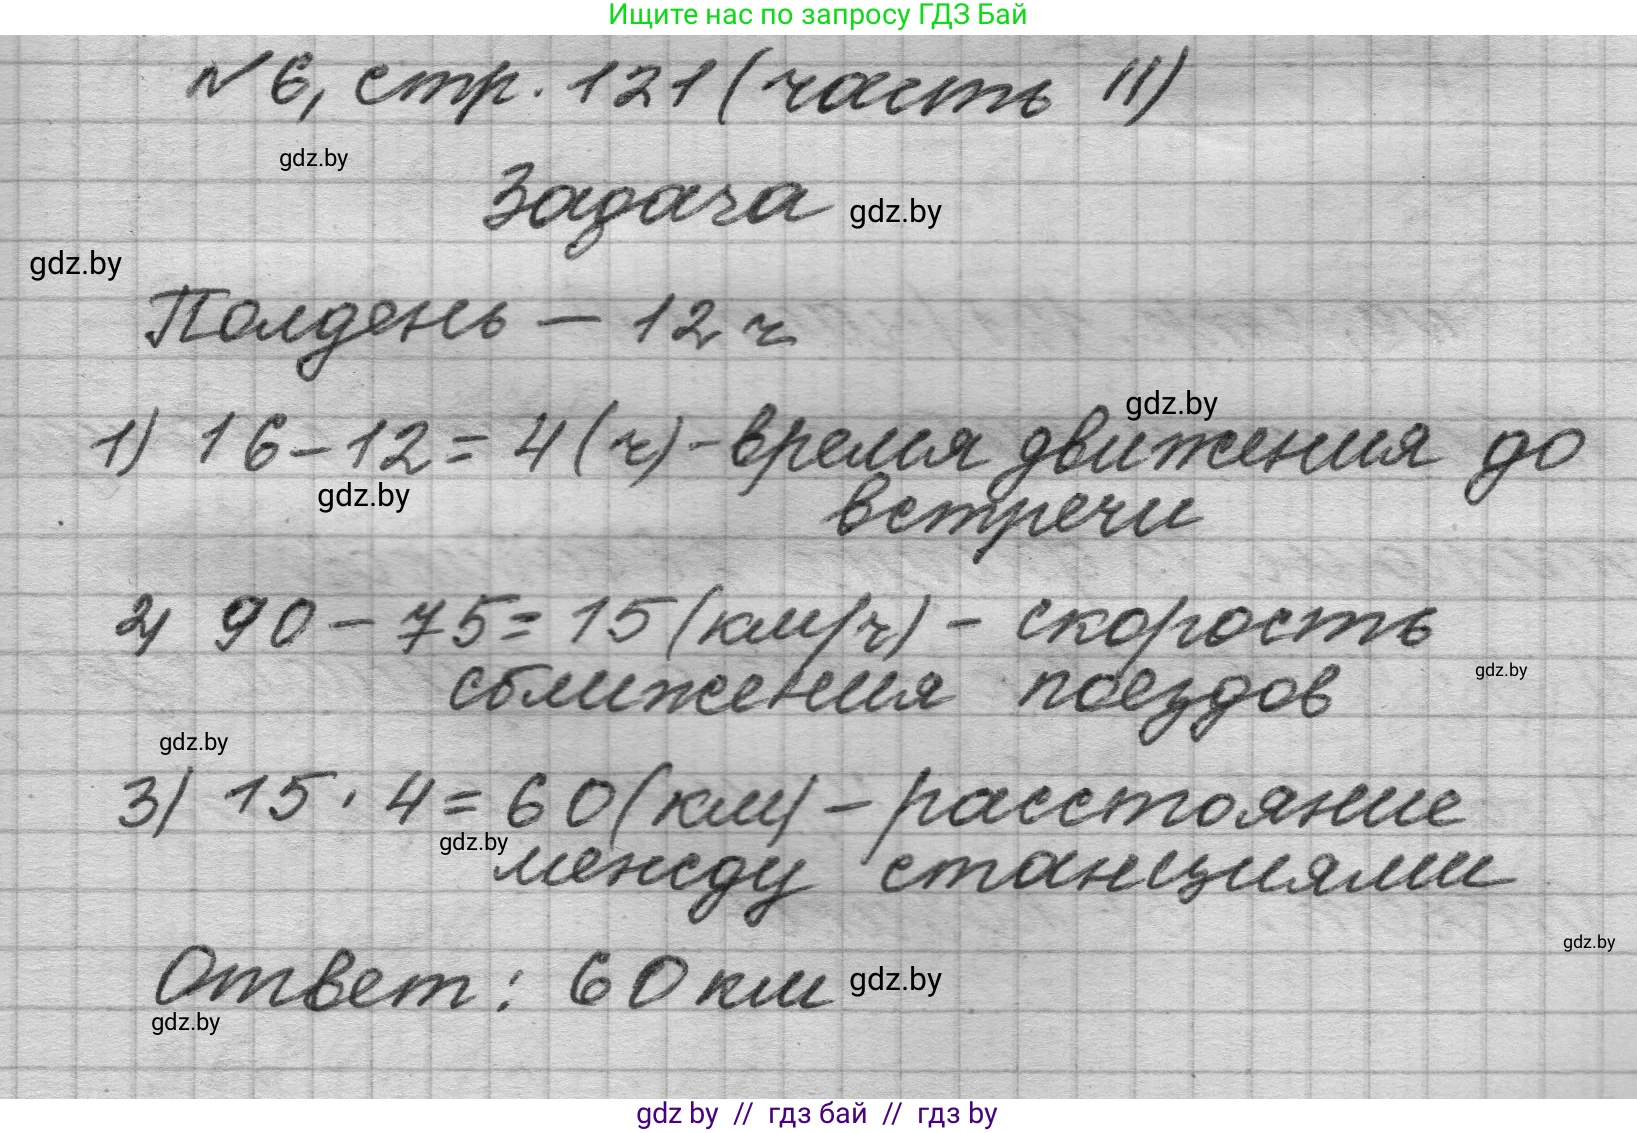 Ищите нас по запросу ГДЗ Бай
№6, стр. 121 (часть II)
gdz.by
Задача gdz.by
gdz.by
Полдень – 12 ч
gdz.by
1) 16 – 12 = 4 (ч) - время движения до
gdz.by
встречи
2) 90 – 75 = 15 (км/ч) – скорость
сближения поездов
gdz.by
gdz.by
3) 15 · 4 = 60 (км) – расстояние
gdz.by
между станциями
gdz.by
Ответ: 60 км gdz.by
gdz.by
gdz by // гдз бай // гдз by